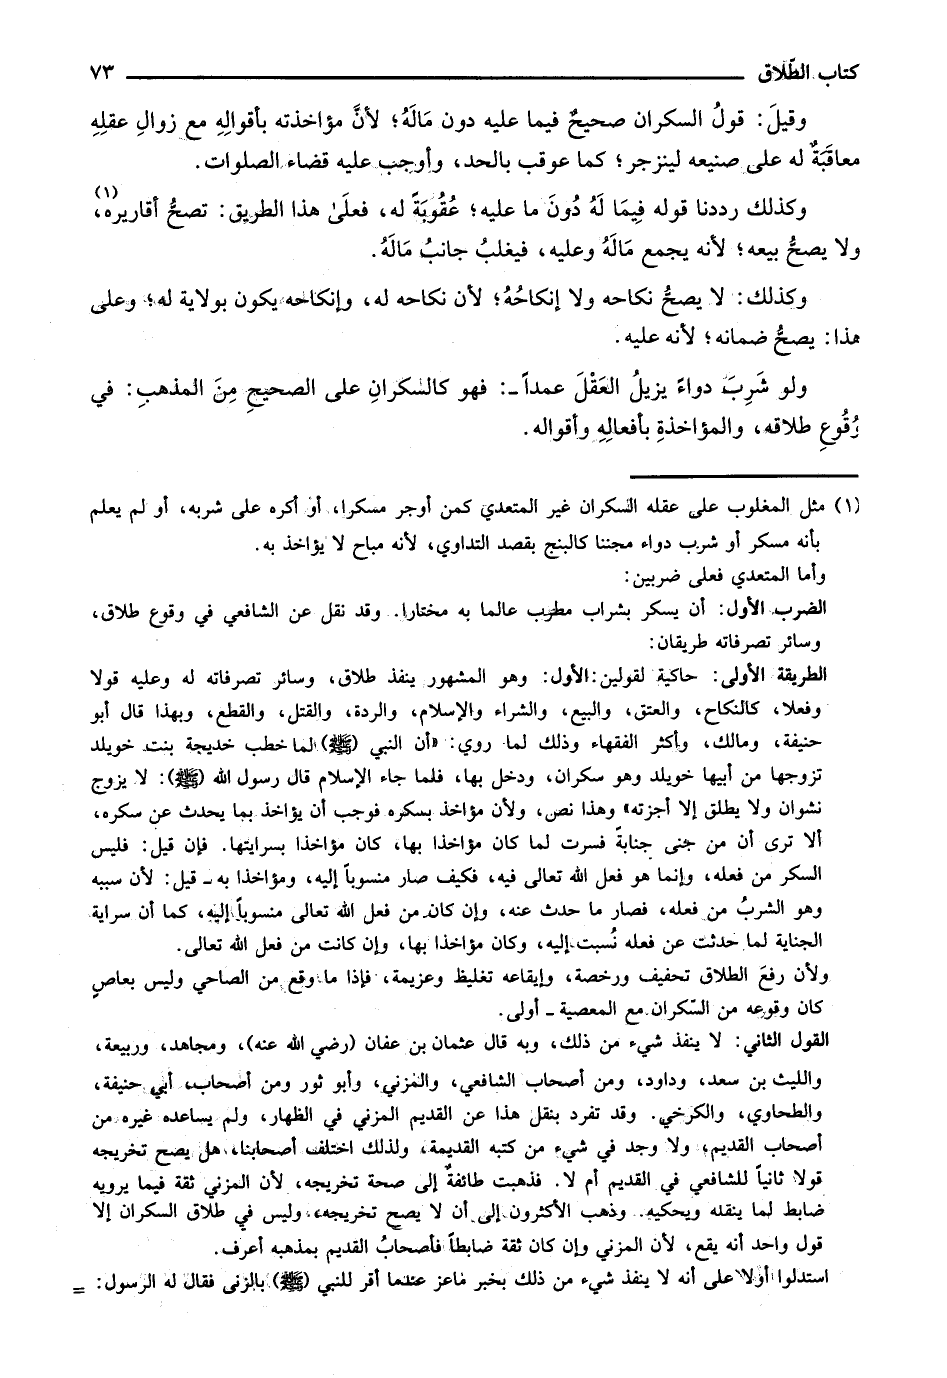 كتاب الطّلاق ٧٣
وقيلَ: قولُ السكران صحيحٌ فيما عليه دون مَالَهُ؛ لأنَّ مؤاخذته بأقوالِهِ مع زوالِ عقلِهِ
معاقَبَةٌ له على صنيعه لينزجر؛ كما عوقب بالحد، وأوجب عليه قضاء الصلوات.
وكذلك رددنا قوله فِيمَا لَهُ دُونَ ما عليه؛ عُقُوبَةً له، فعلَىٰ هذا الطريق: تصحُّ أقاريره(١)،
ولا يصحُّ بيعه؛ لأنه يجمع مَالَهُ وعليه، فيغلبُ جانبُ مَالَهُ.
وكذلك: لا يصحُّ نكاحه ولا إنكاحُهُ؛ لأن نكاحه له، وإنكاحه يكون بولاية له؛ وعلى
هذا: يصحُّ ضمانه؛ لأنه عليه.
ولو شَرِبَ دواءً يزيلُ العَقْلَ عمداً ـ: فهو كالسكرانِ على الصحيحِ مِنَ المذهبِ: في
وُقُوعِ طلاقه، والمؤاخذةِ بأفعالِهِ وأقواله.
(١) مثل المغلوب على عقله السكران غير المتعدي كمن أوجر مسكرا، أو أكره على شربه، أو لم يعلم
بأنه مسكر أو شرب دواء مجننا كالبنج بقصد التداوي، لأنه مباح لا يؤاخذ به.
وأما المتعدي فعلى ضربين:
الضرب الأول: أن يسكر بشراب مطرب عالما به مختارا. وقد نقل عن الشافعي في وقوع طلاق،
وسائر تصرفاته طريقان:
الطريقة الأولى: حاكية لقولين: الأول: وهو المشهور ينفذ طلاق، وسائر تصرفاته له وعليه قولا
وفعلا، كالنكاح، والعتق، والبيع، والشراء والإسلام، والردة، والقتل، والقطع، وبهذا قال أبو
حنيفة، ومالك، وأكثر الفقهاء وذلك لما روي: «أن النبي (ﷺ) لما خطب خديجة بنت خويلد
تزوجها من أبيها خويلد وهو سكران، ودخل بها، فلما جاء الإسلام قال رسول الله (ﷺ): لا يزوج
نشوان ولا يطلق إلا أجزته» وهذا نص، ولأن مؤاخذ بسكره فوجب أن يؤاخذ بما يحدث عن سكره،
ألا ترى أن من جنى جنايةً فسرت لما كان مؤاخذا بها، كان مؤاخذا بسرايتها. فإن قيل: فليس
السكر من فعله، وإنما هو فعل الله تعالى فيه، فكيف صار منسوباً إليه، ومؤاخذا به ـ قيل: لأن سببه
وهو الشربُ من فعله، فصار ما حدث عنه، وإن كان من فعل الله تعالى منسوباً إليه، كما أن سراية
الجناية لما حدثت عن فعله نُسبت إليه، وكان مؤاخذا بها، وإن كانت من فعل الله تعالى.
ولأن رفعَ الطلاق تحفيف ورخصة، وإيقاعه تغليظ وعزيمة، فإذا ما وقع من الصاحي وليس بعاصٍ
كان وقوعه من السّكران مع المعصية ـ أولى.
القول الثاني: لا ينفذ شيء من ذلك، وبه قال عثمان بن عفان (رضي الله عنه)، ومجاهد، وربيعة،
والليث بن سعد، وداود، ومن أصحاب الشافعي، والمزني، وأبو ثور ومن أصحاب، أبي حنيفة،
والطحاوي، والكرخي. وقد تفرد بنقل هذا عن القديم المزني في الظهار، ولم يساعده غيره من
أصحاب القديم؛ ولا وجد في شيء من كتبه القديمة، ولذلك اختلف أصحابنا، هل يصح تخريجه
قولا ثانياً للشافعي في القديم أم لا. فذهبت طائفةٌ إلى صحة تخريجه، لأن المزني ثقة فيما يرويه
ضابط لما ينقله ويحكيه. وذهب الأكثرون إلى أن لا يصح تخريجه، وليس في طلاق السكران إلا
قول واحد أنه يقع، لأن المزني وإن كان ثقة ضابطاً فأصحابُ القديم بمذهبه أعرف.
استدلوا أولا على أنه لا ينفذ شيء من ذلك بخبر ماعز عندما أقر للنبي (ﷺ) بالزنى فقال له الرسول: =